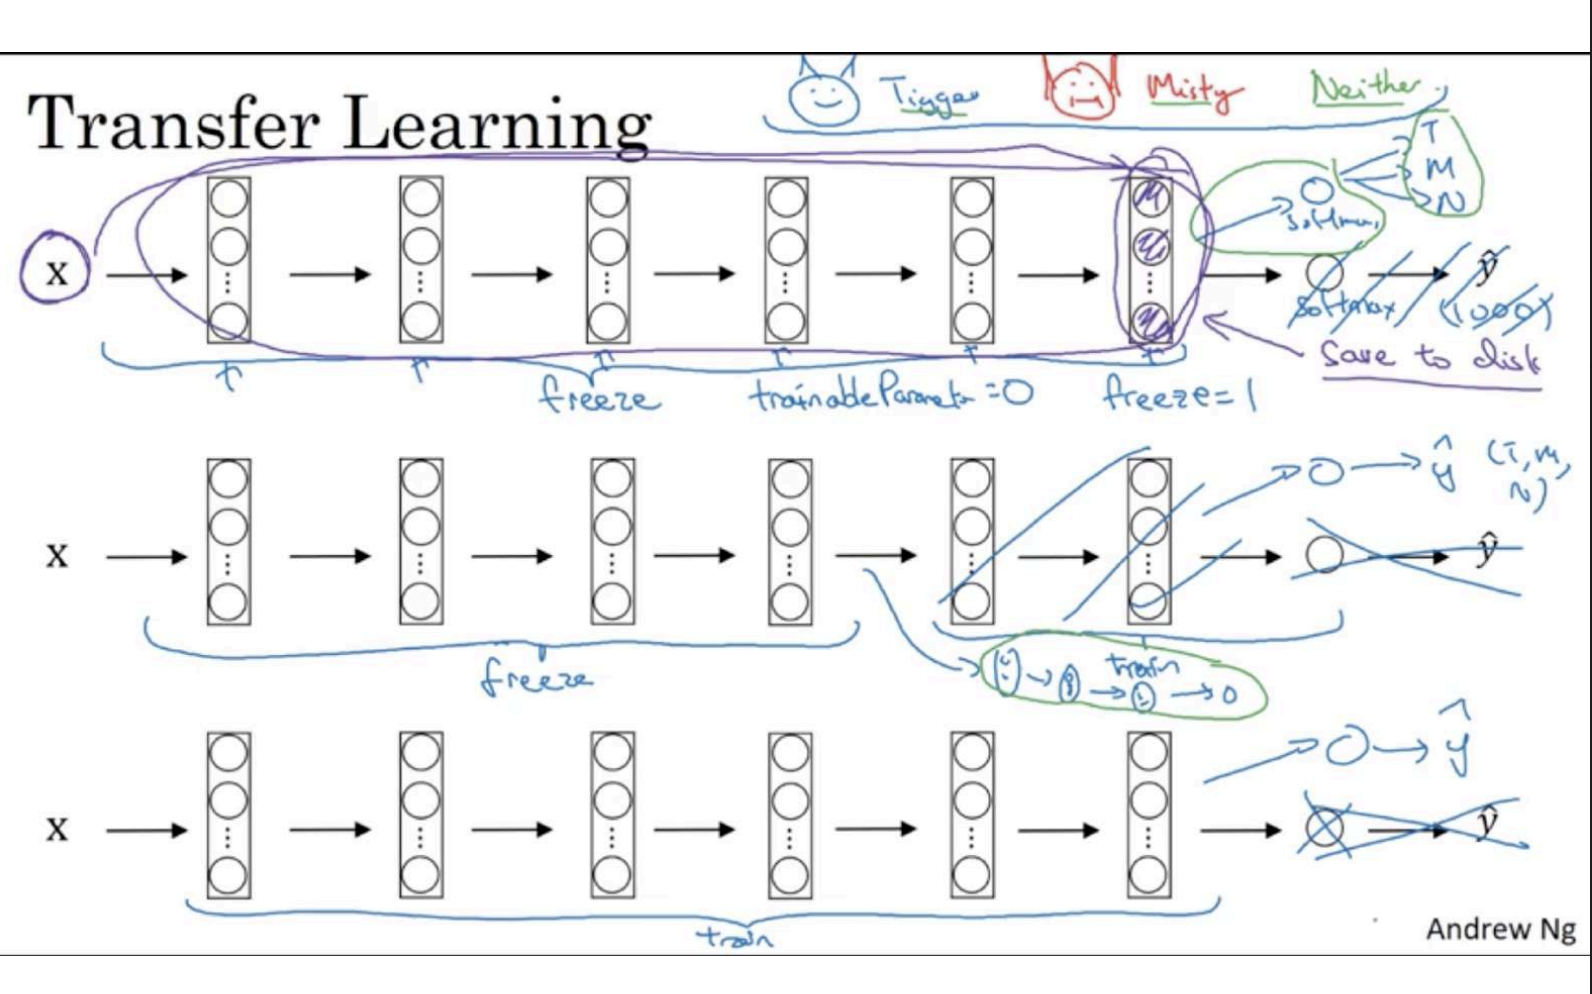 Transfer Learning
Tigger Misty Neither
T
M
N
softmax
x
ŷ
softmax (1000)
Save to disk
freeze trainableParameter=0 freeze=1
ŷ (T, M, N)
x
ŷ
freeze
train
ŷ
x
ŷ
train
Andrew Ng